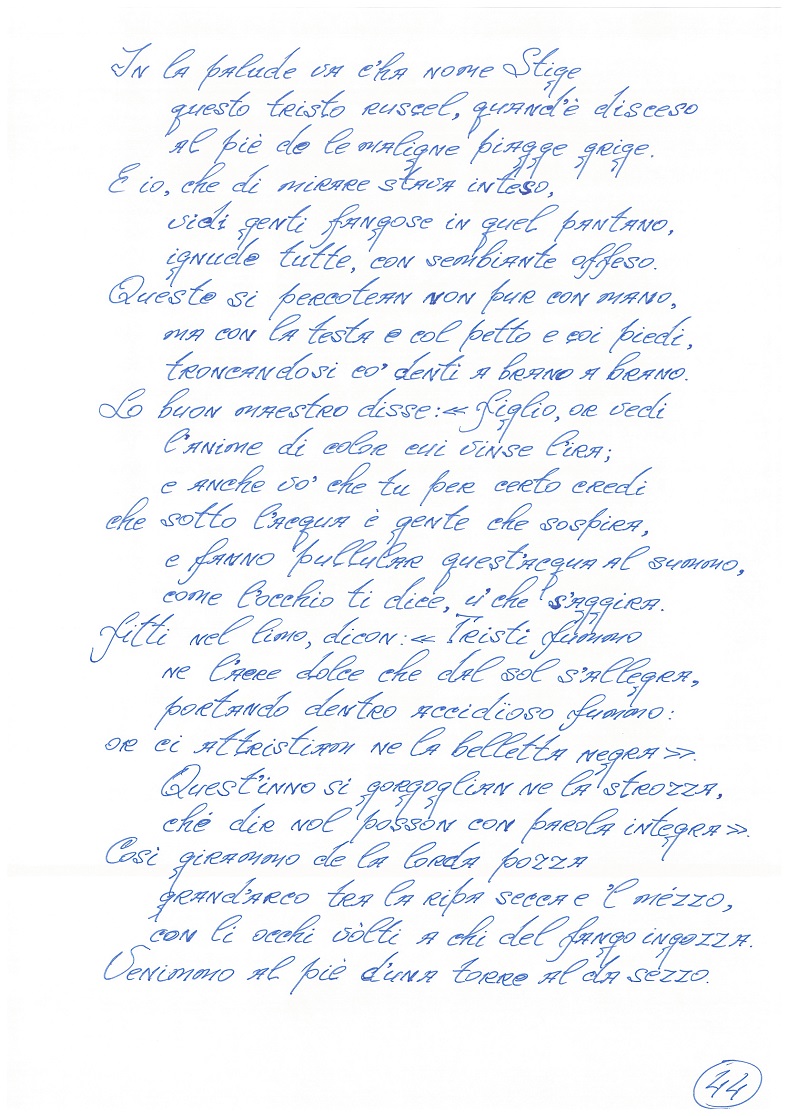 In la palude va c'ha nome Stige
questo tristo ruscel, quand'è disceso
al piè de le maligne piagge grige.
E io, che di mirare stava inteso,
vidi genti fangose in quel pantano,
ignude tutte, con sembiante offeso.
Queste si percotean non pur con mano,
ma con la testa e col petto e coi piedi,
troncandosi co' denti a brano a brano.
Lo buon maestro disse: «Figlio, or vedi
l'anime di color cui vinse l'ira;
e anche vo' che tu per certo credi
che sotto l'acqua è gente che sospira,
e fanno pullular quest'acqua al summo,
come l'occhio ti dice, u' che s'aggira.
Fitti nel limo, dicon: «Tristi fummo
ne l'aere dolce che dal sol s'allegra,
portando dentro accidïoso fummo:
or ci attristiam ne la belletta negra».
Quest'inno si gorgoglian ne la strozza,
ché dir nol posson con parola integra».
Così girammo de la lorda pozza
grand'arco tra la ripa secca e 'l mézzo,
con li occhi vòlti a chi del fango ingozza.
Venimmo al piè d'una torre al da sezzo.
44